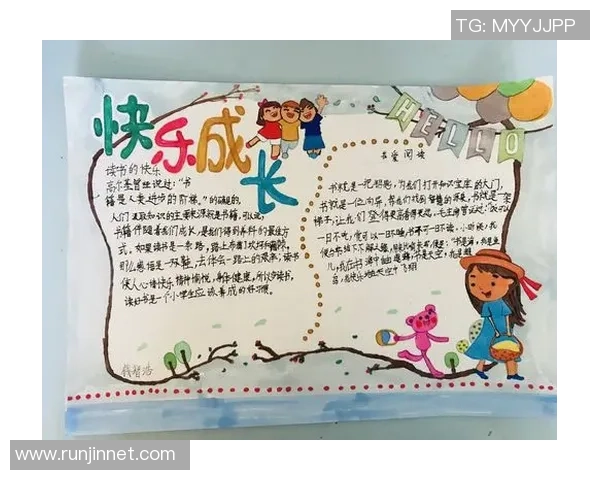 TG: MYYJJPP
快乐成长
HELLO
读书的快乐
高尔基曾经说过：“书
籍是人类进步的阶梯。”的确是的，
人们汲取知识的主要来源就是书籍，可以说，
书籍伴随着我们成长，是我们得到养料的最佳方
式。如果读书是一条路，路上布满了坎坷和崎岖，
那么思悟是一双鞋，去体会一路上的艰辛，读书
使人心情快乐，精神愉悦，身体健康，所以多读书，
读好书是一个小学生应该养成的好习惯。
书爱阅读
书就是一把钥匙，为我们打开知识宝库的大门，
书就是一位向导，带我们找到智慧的源泉，书就是一架
梯子，让我们登得更高看得更远，毛主席曾说过：“饭可以
一日不吃，觉可以一日不睡，书不可一日不读。小时候，我
书是海，我是鱼
儿，我在书海中自由遨游，书是天空，我是翅
鸟，我快乐地在天空中飞翔
钱智浩
www.runjinnet.com